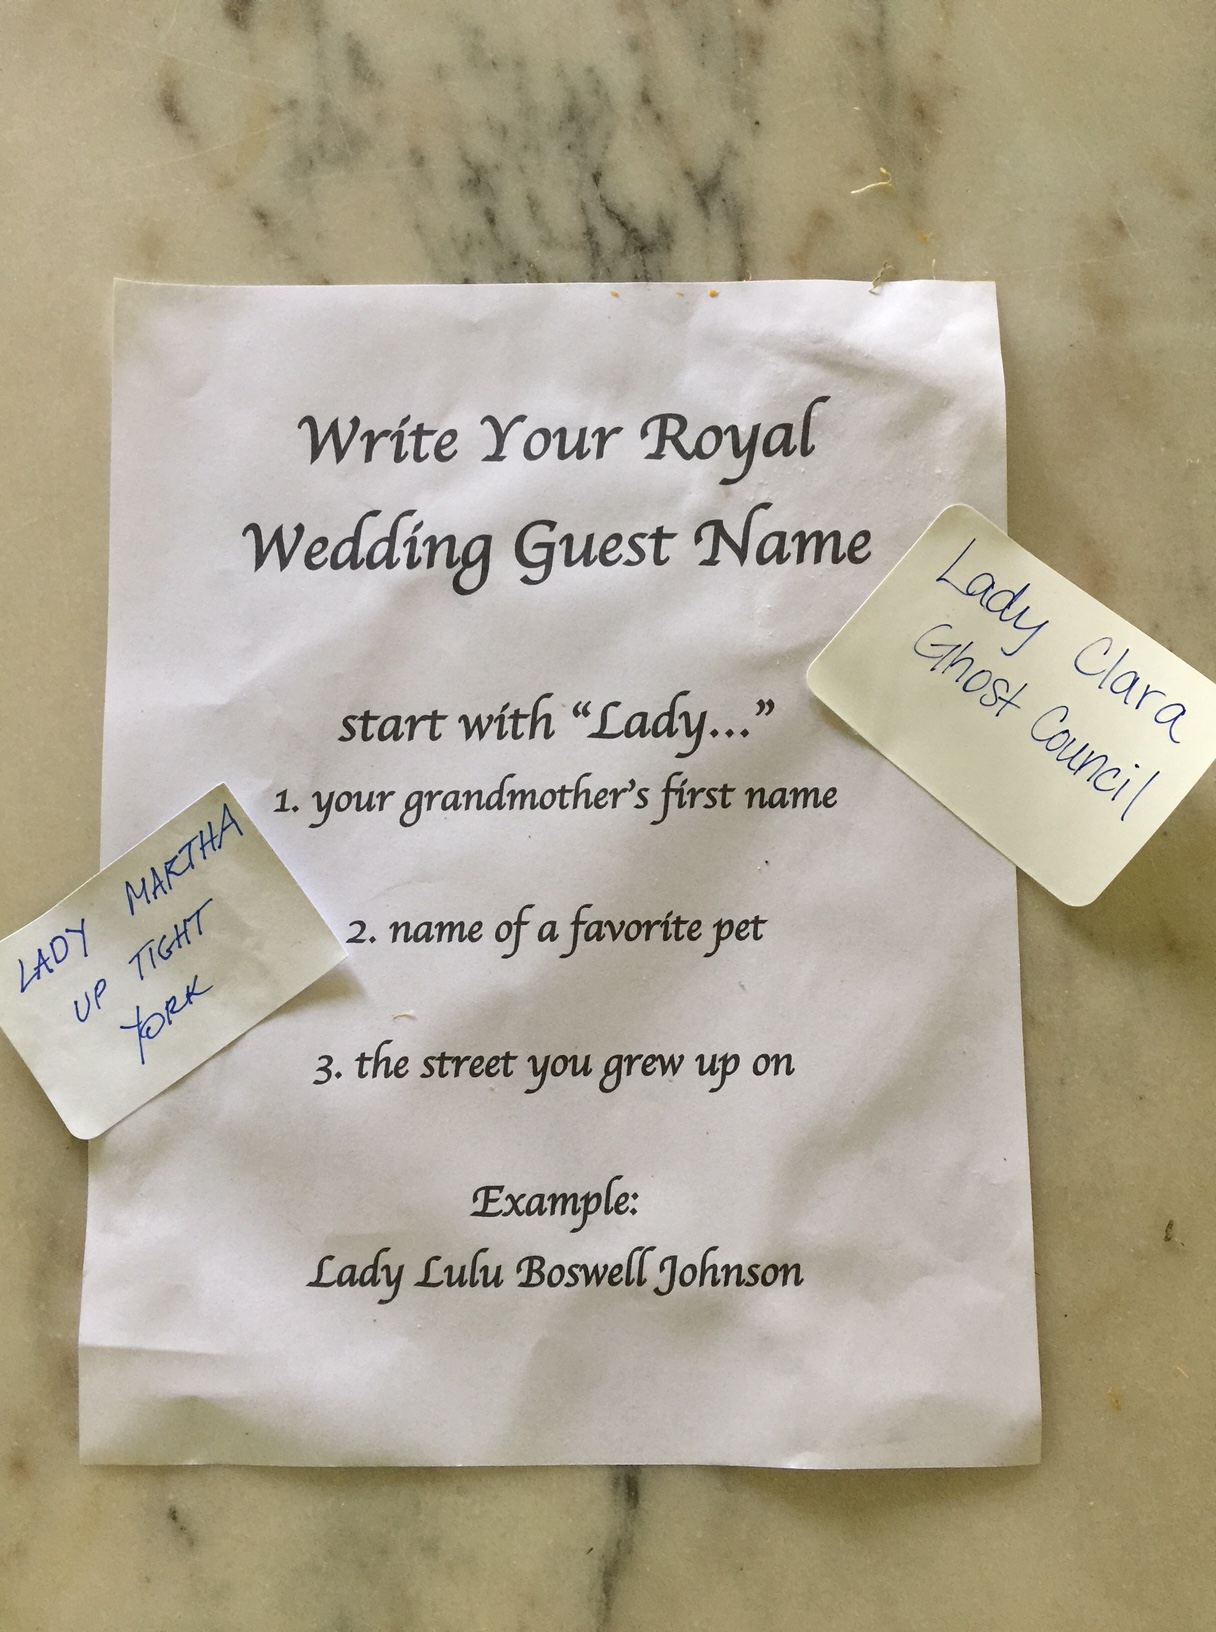 Write Your Royal
Wedding Guest Name
start with “Lady...”
1. your grandmother's first name
2. name of a favorite pet
3. the street you grew up on
Example:
Lady Lulu Boswell Johnson
Lady Clara
Ghost Council
LADY MARTHA
UP TIGHT
YORK